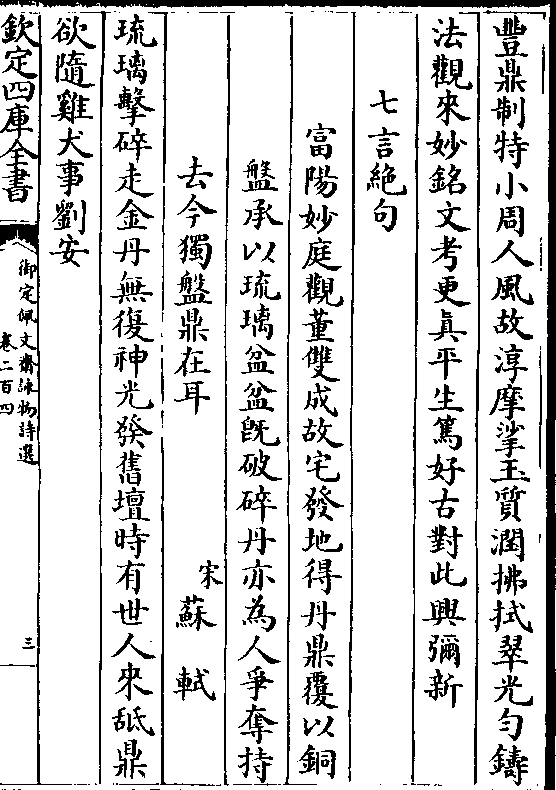 豐鼎制特小周人風故淳摩挲玉質潤拂拭翠光勻鑄
法觀來妙銘文考更真平生篤好古對此興彌新
七言絶句
富陽妙庭觀董雙成故宅發地得丹鼎覆以銅
盤承以琉璃盆盆旣破碎丹亦為人爭奪持
去今獨盤鼎在耳
宋蘇軾
琉璃擊碎走金丹無復神光發舊壇時有世人來䑛鼎
欲隨雞犬事劉安
欽定四庫全書
御定佩文齋詠物詩選
卷二百四
三